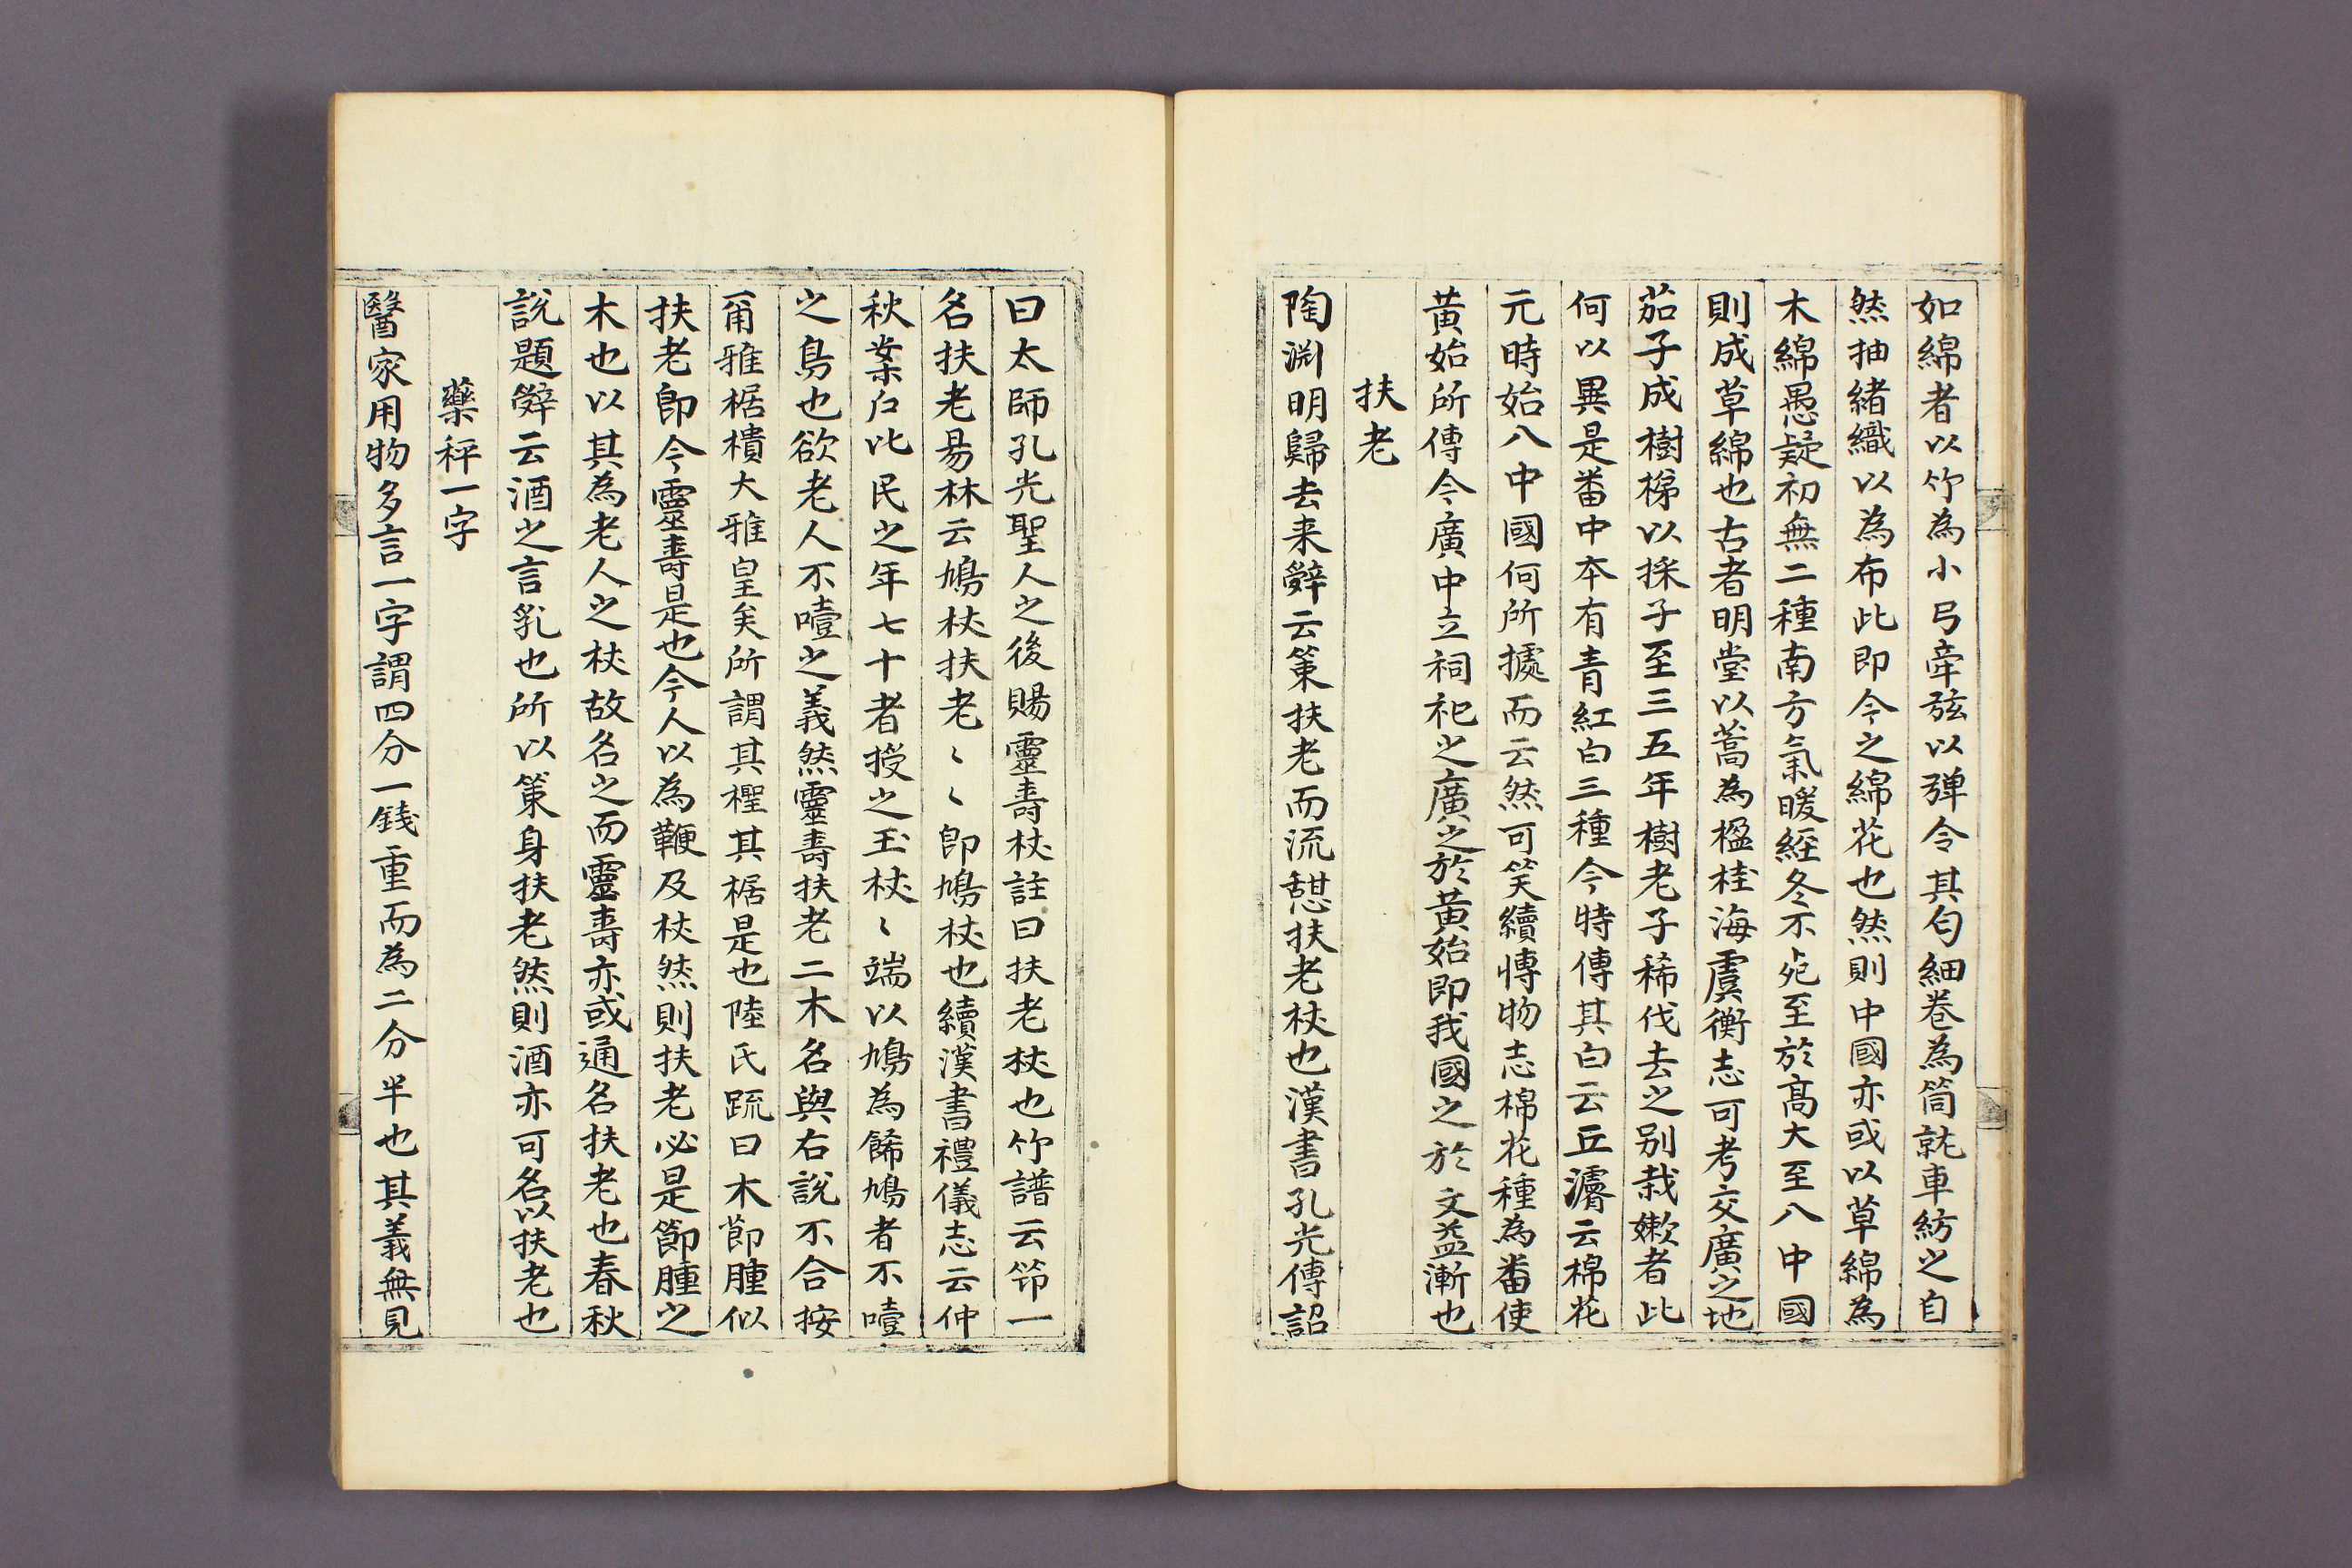 如綿者以竹為小弓牽弦以弹令其匀細卷為筒就車紡之自
然抽緒織以為布此即今之綿花也然則中國亦或以草綿為
木綿愚疑初無二種南方氣暖經冬不死至於髙大至八中國
則成草綿也古者明堂以蒿為楹桂海虞衡志可考交廣之地
茄子成樹梯以採子至三五年樹老子稀伐去之别栽嫩者此
何以異是番中本有青紅白三種今特傳其白云丘濬云棉花
元時始八中國何所據而云然可笑續慱物志棉花種為番使
黄始所傳令廣中立祠祀之廣之於黄始即我國之於文益漸也
扶老
陶渊明歸去来辤云策扶老而流憇扶老杖也漢書孔光傳詔
曰太師孔光聖人之後賜靈壽杖註曰扶老杖也竹譜云笻一
名扶老易林云鳩杖扶老〻〻即鳩杖也續漢書禮儀志云仲
秋案户比民之年七十者授之玉杖〻端以鳩為餙鳩者不噎
之鳥也欲老人不噎之義然靈壽扶老二木名與右說不合按
爾雅椐樻大雅皇矣所謂其檉其椐是也陸氏疏曰木節腫似
扶老即今靈壽是也今人以為鞭及杖然則扶老必是節腫之
木也以其為老人之杖故名之而靈壽亦或通名扶老也春秋
說題辤云酒之言乳也所以策身扶老然則酒亦可名以扶老也
藥秤一字
醫家用物多言一字謂四分一錢重而為二分半也其義無見